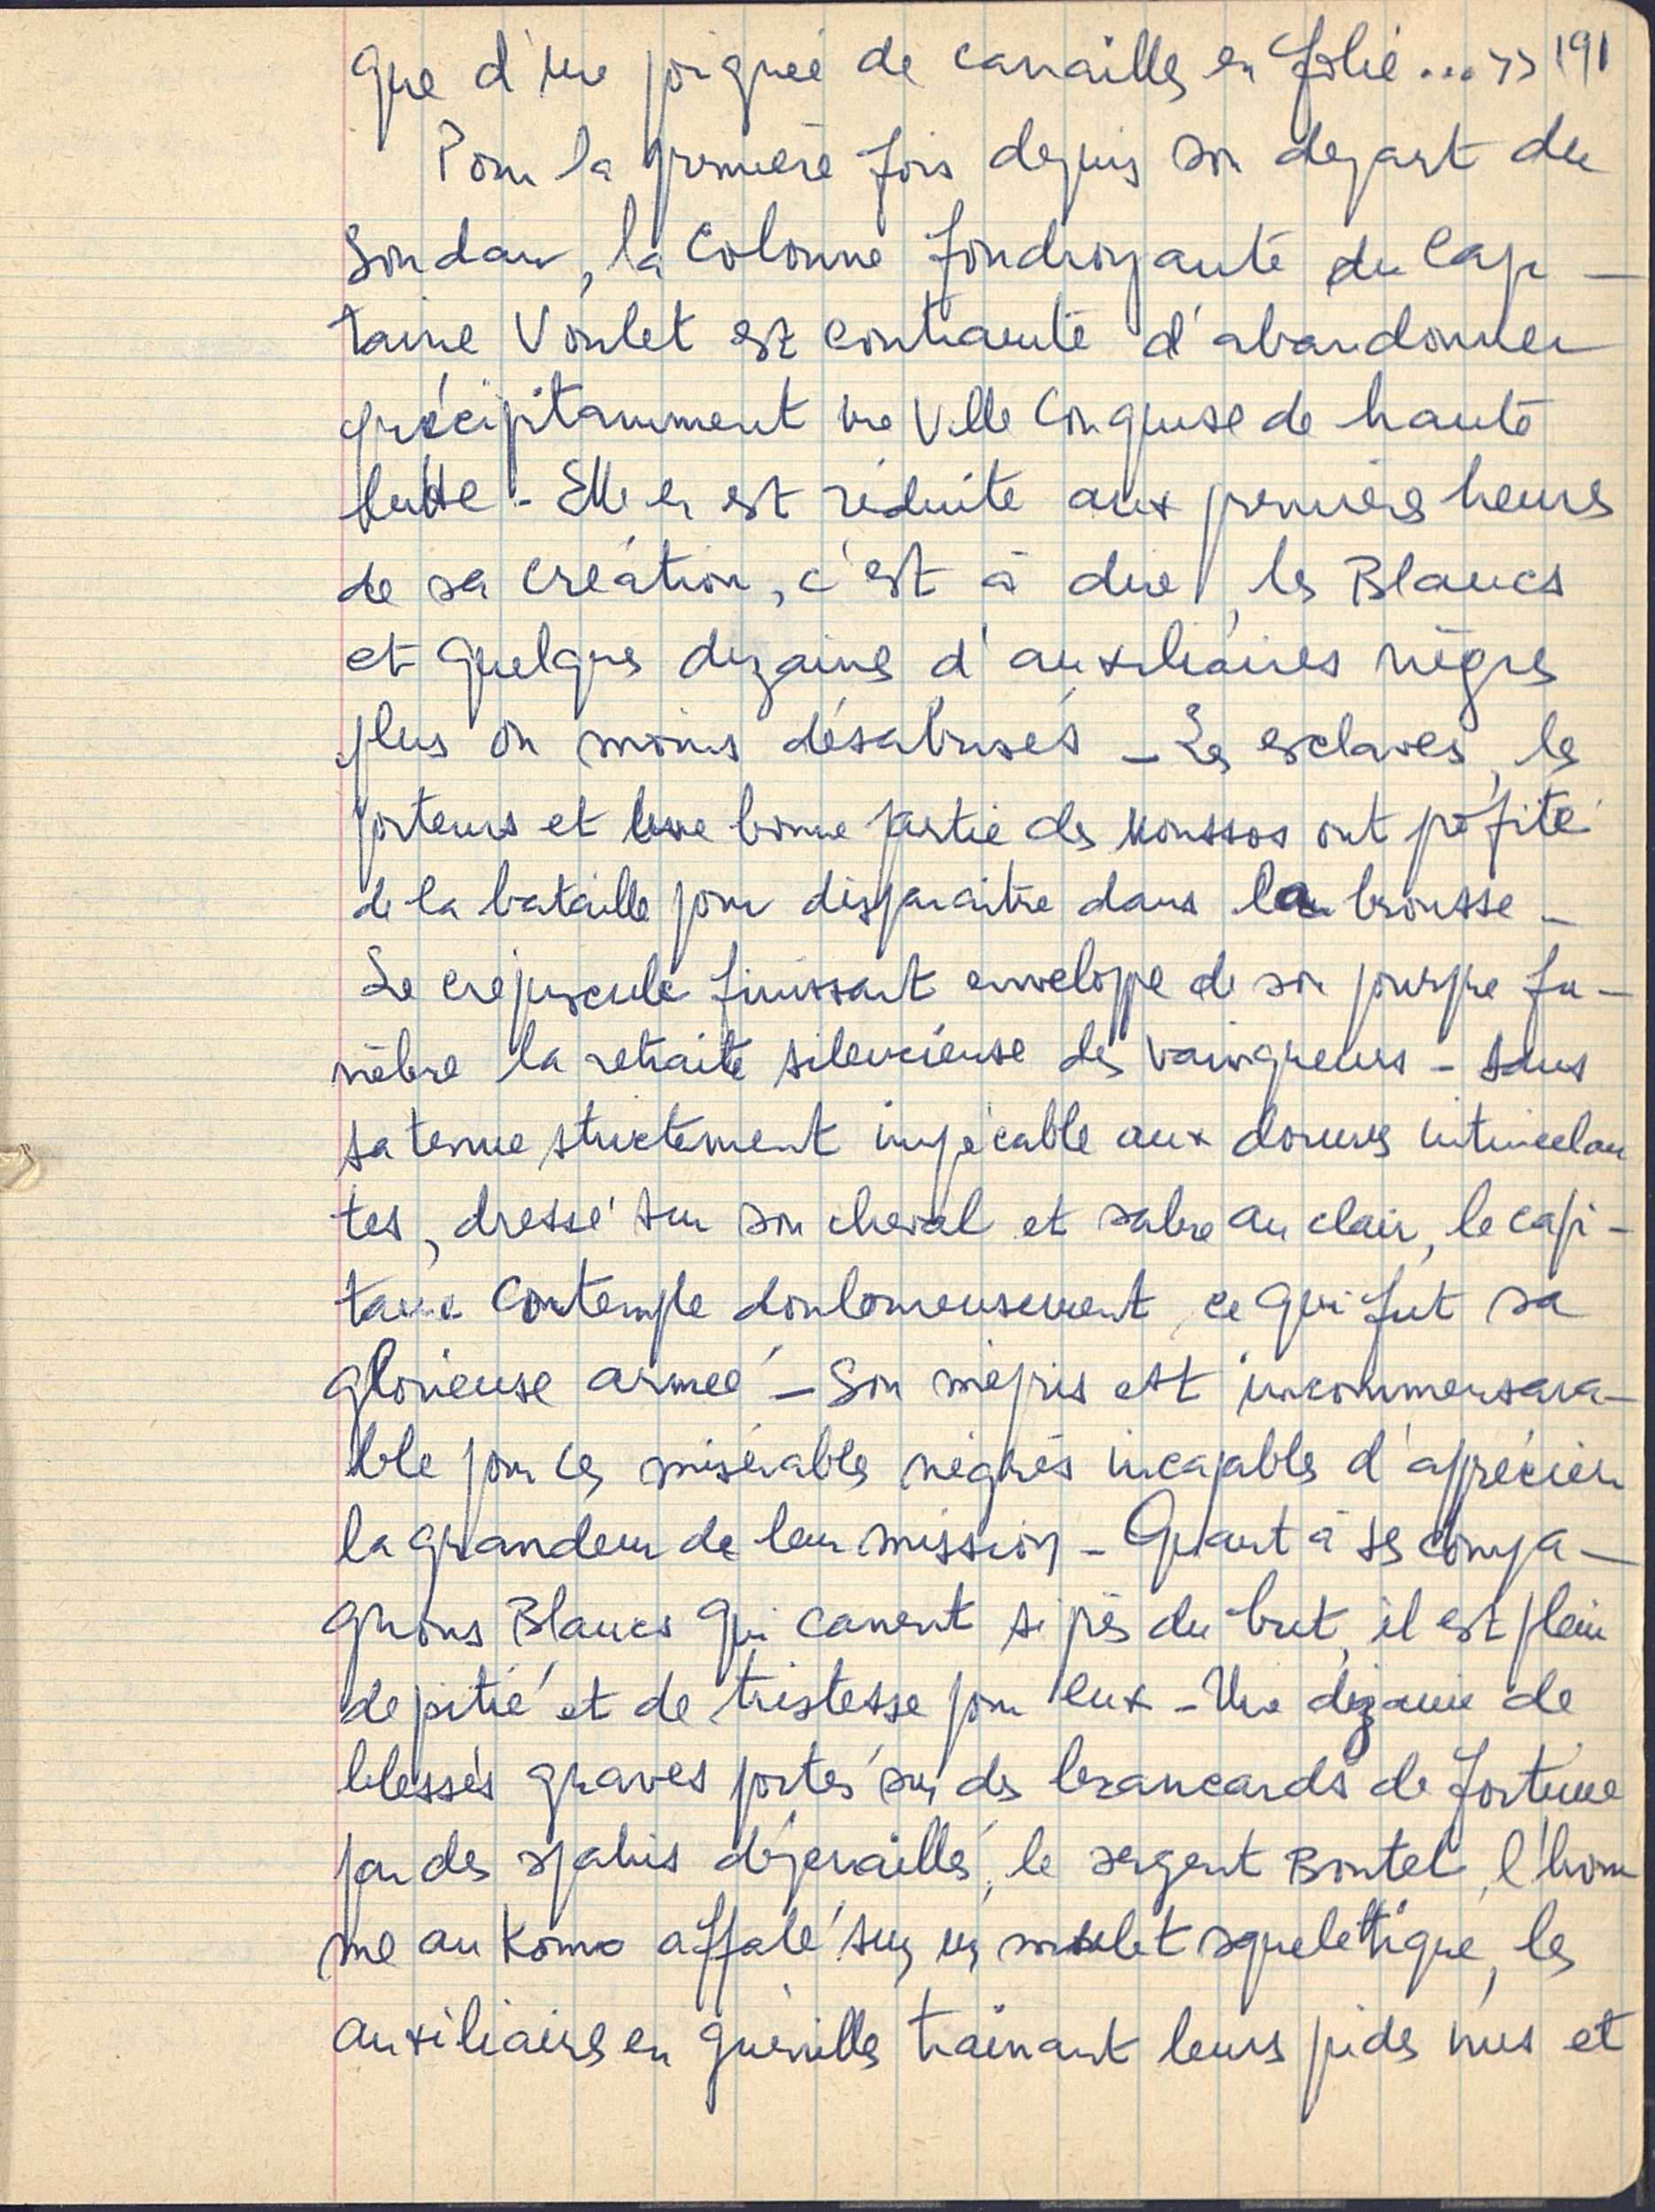 que d'une poignée de canailles en folie... >> 191
Pour la première fois depuis son depart du
Soudan, la Colonne foudroyante du Capi-
taine Voulet est contrainte d'abandonner
précipitamment une ville conquise de haute
lutte - Elle en est réduite aux premières heures
de sa création, c'est à dire, les Blancs
et quelques dizaines d'auxiliaires nègres
plus ou moins désabusés - Les esclaves, les
porteurs et une bonne partie des Moussos ont profité
de la bataille pour disparaitre dans la brousse -
Le crépuscule finissant enveloppe de son pourpre fu-
nèbre la retraite silencieuse des vainqueurs - Dans
sa tenue strictement impécable aux dorures
tes, dressé sur son cheval et sabre au clair, le capi-
taine contemple douloureusement ce qui fut sa
glorieuse armée - Son mépris est incommensura-
ble pour ces misérables nègres incapables d'apprécier
la grandeur de leur mission - Quant à ses compa-
gnons Blancs qui canent si près du but, il est plein
de pitié et de tristesse pour eux - Une dizaine de
blessés graves portés sur des brancards de fortune
par des spahis dépenaillés, le sergent Boutel, l'hom
me au Komo affalé sur un mulet squelettique, les
auxiliaires en guenilles trainant leurs pieds nus et